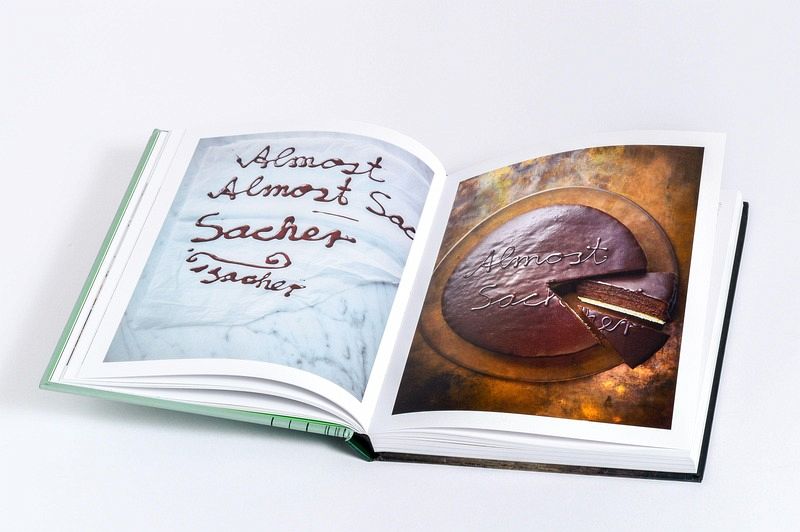 Almost
Almost Sac
Sacher
Sacher
Almost
Sacher